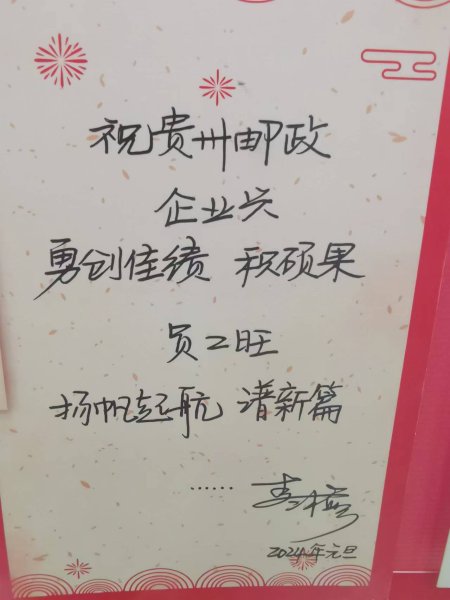 祝贵州邮政
企业兴
勇创佳绩 积硕果
员工旺
扬帆起航 谱新篇
……
2024年元旦